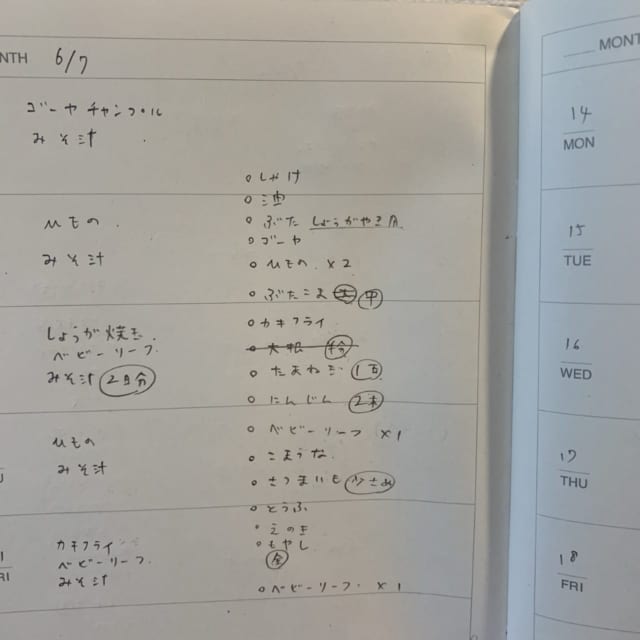 NTH 6/7
ゴーヤチャンプル
みそ汁
ひもの
みそ汁
しょうが焼き
ベビーリーフ
みそ汁 2日分
ひもの
みそ汁
カキフライ
ベビーリーフ
みそ汁
RI
○しゃけ
○油
○ぶた しょうがやき用
○ゴーヤ
○ひもの ×2
○ぶたこま
○カキフライ
○大根
○たまねぎ
○にんじん 2本
○ベビーリーフ ×1
○こまつな
○さつまいも 少さめ
○とうふ
○えのき
○もやし
○ベビーリーフ ×1
MONT
14
MON
15
TUE
16
WED
17
THU
18
FRI